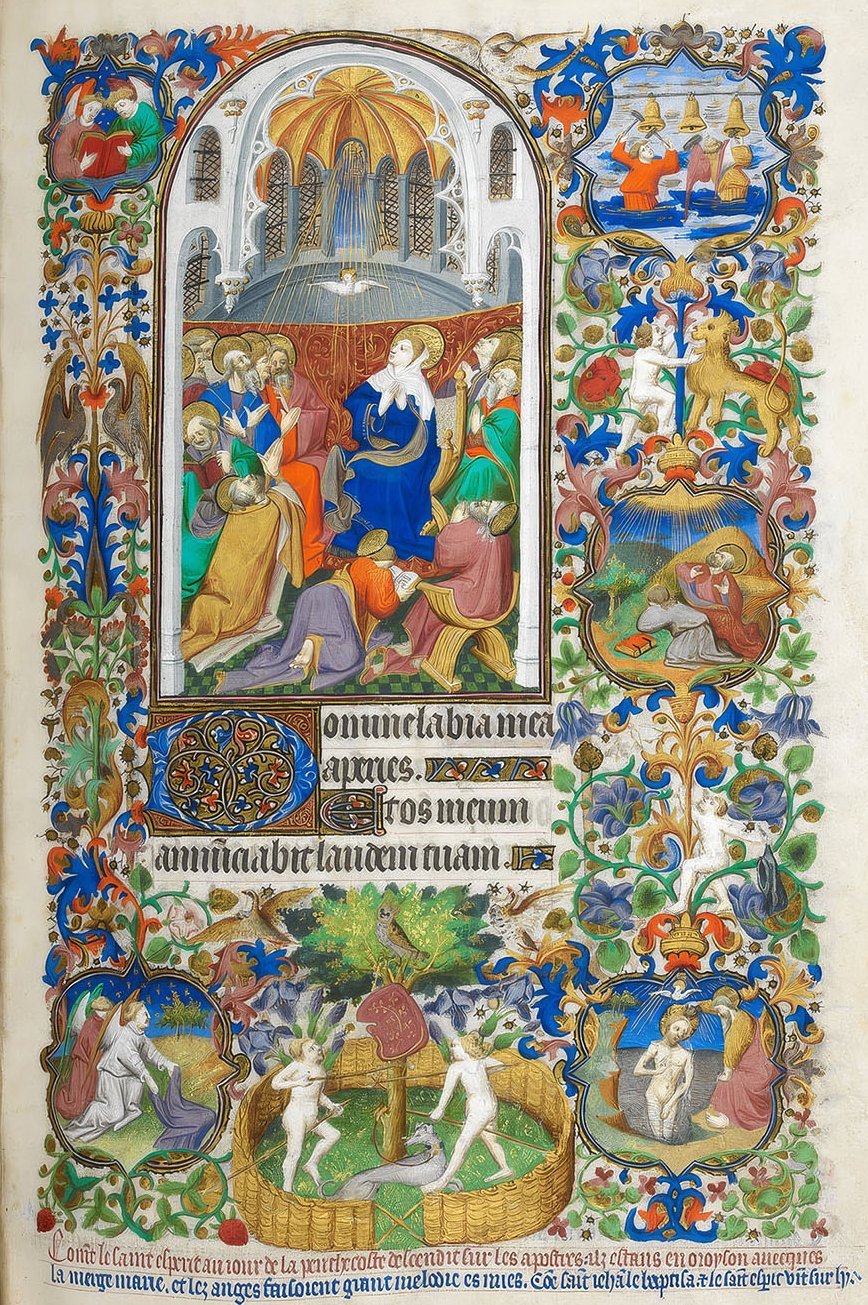 Domine labia mea
aperies.
Et os meum
annūciabit laudem tuam.
Com̄t le saint esperit au iour de la penthecoste descendit sur les apostres. ilz estans en oroyson auecques
la vierge marie. et les anges faisoient grant melodie es nues. Cōe saīt iehā le baptisa ⁊ le saīt esp̄it vīt sur ly.